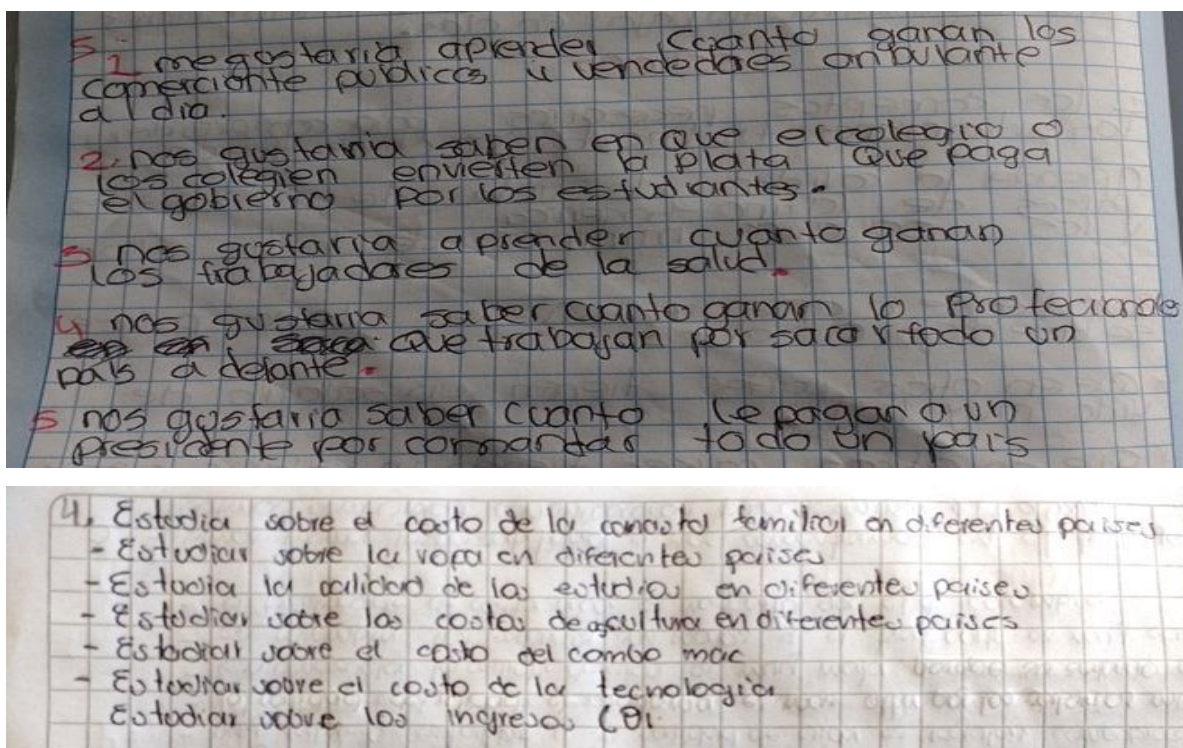 5. 1 me gustaria aprender Cuanto ganan los
comerciante publicos y vendedores anbulante
al dia.
2. nos gustaria saben en que el colegio o
los colegien envierten la plata que paga
el gobierno por los estudiantes.
3 nos gustaria aprender cuanto ganan
los trabajadores de la salud.
4 nos gustaria saber cuanto ganan lo
que trabajan por sacar todo un
pais a delante.
5 nos gustaria saber cuanto le pagan a un
presidente por comandar todo un pais
4. Estudia sobre el costo de la canasta familiar en diferentes paises
- Estudiar sobre la ropa en diferentes paises
- Estudia la calidad de las estudios en diferentes paises
- Estudiar sobre los costos de cultura en diferentes paises
- Estudiar sobre el costo del combo mac
- Estudiar sobre el costo de la tecnologia
Estudiar sobre los ingresos